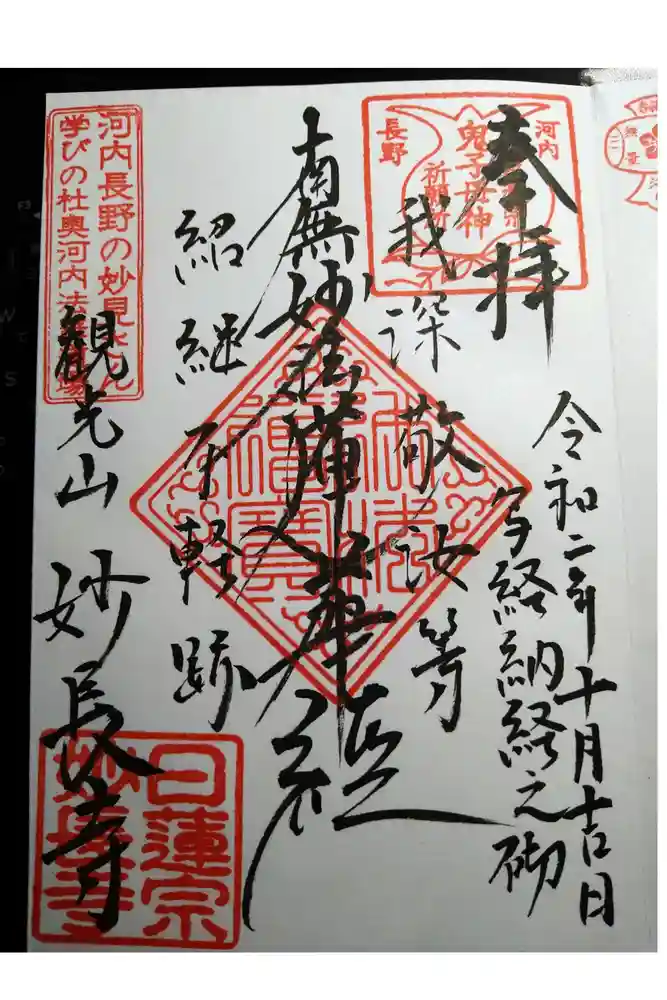 奉拝
令和二年十月吉日
写経納経之砌
河内
長野
鬼子母神
祈願所
我深敬汝等
南無妙法蓮華経
紹継不軽跡
河内長野の妙見さん
学びの社奥河内法
観光山 妙長寺
日蓮宗
妙長寺